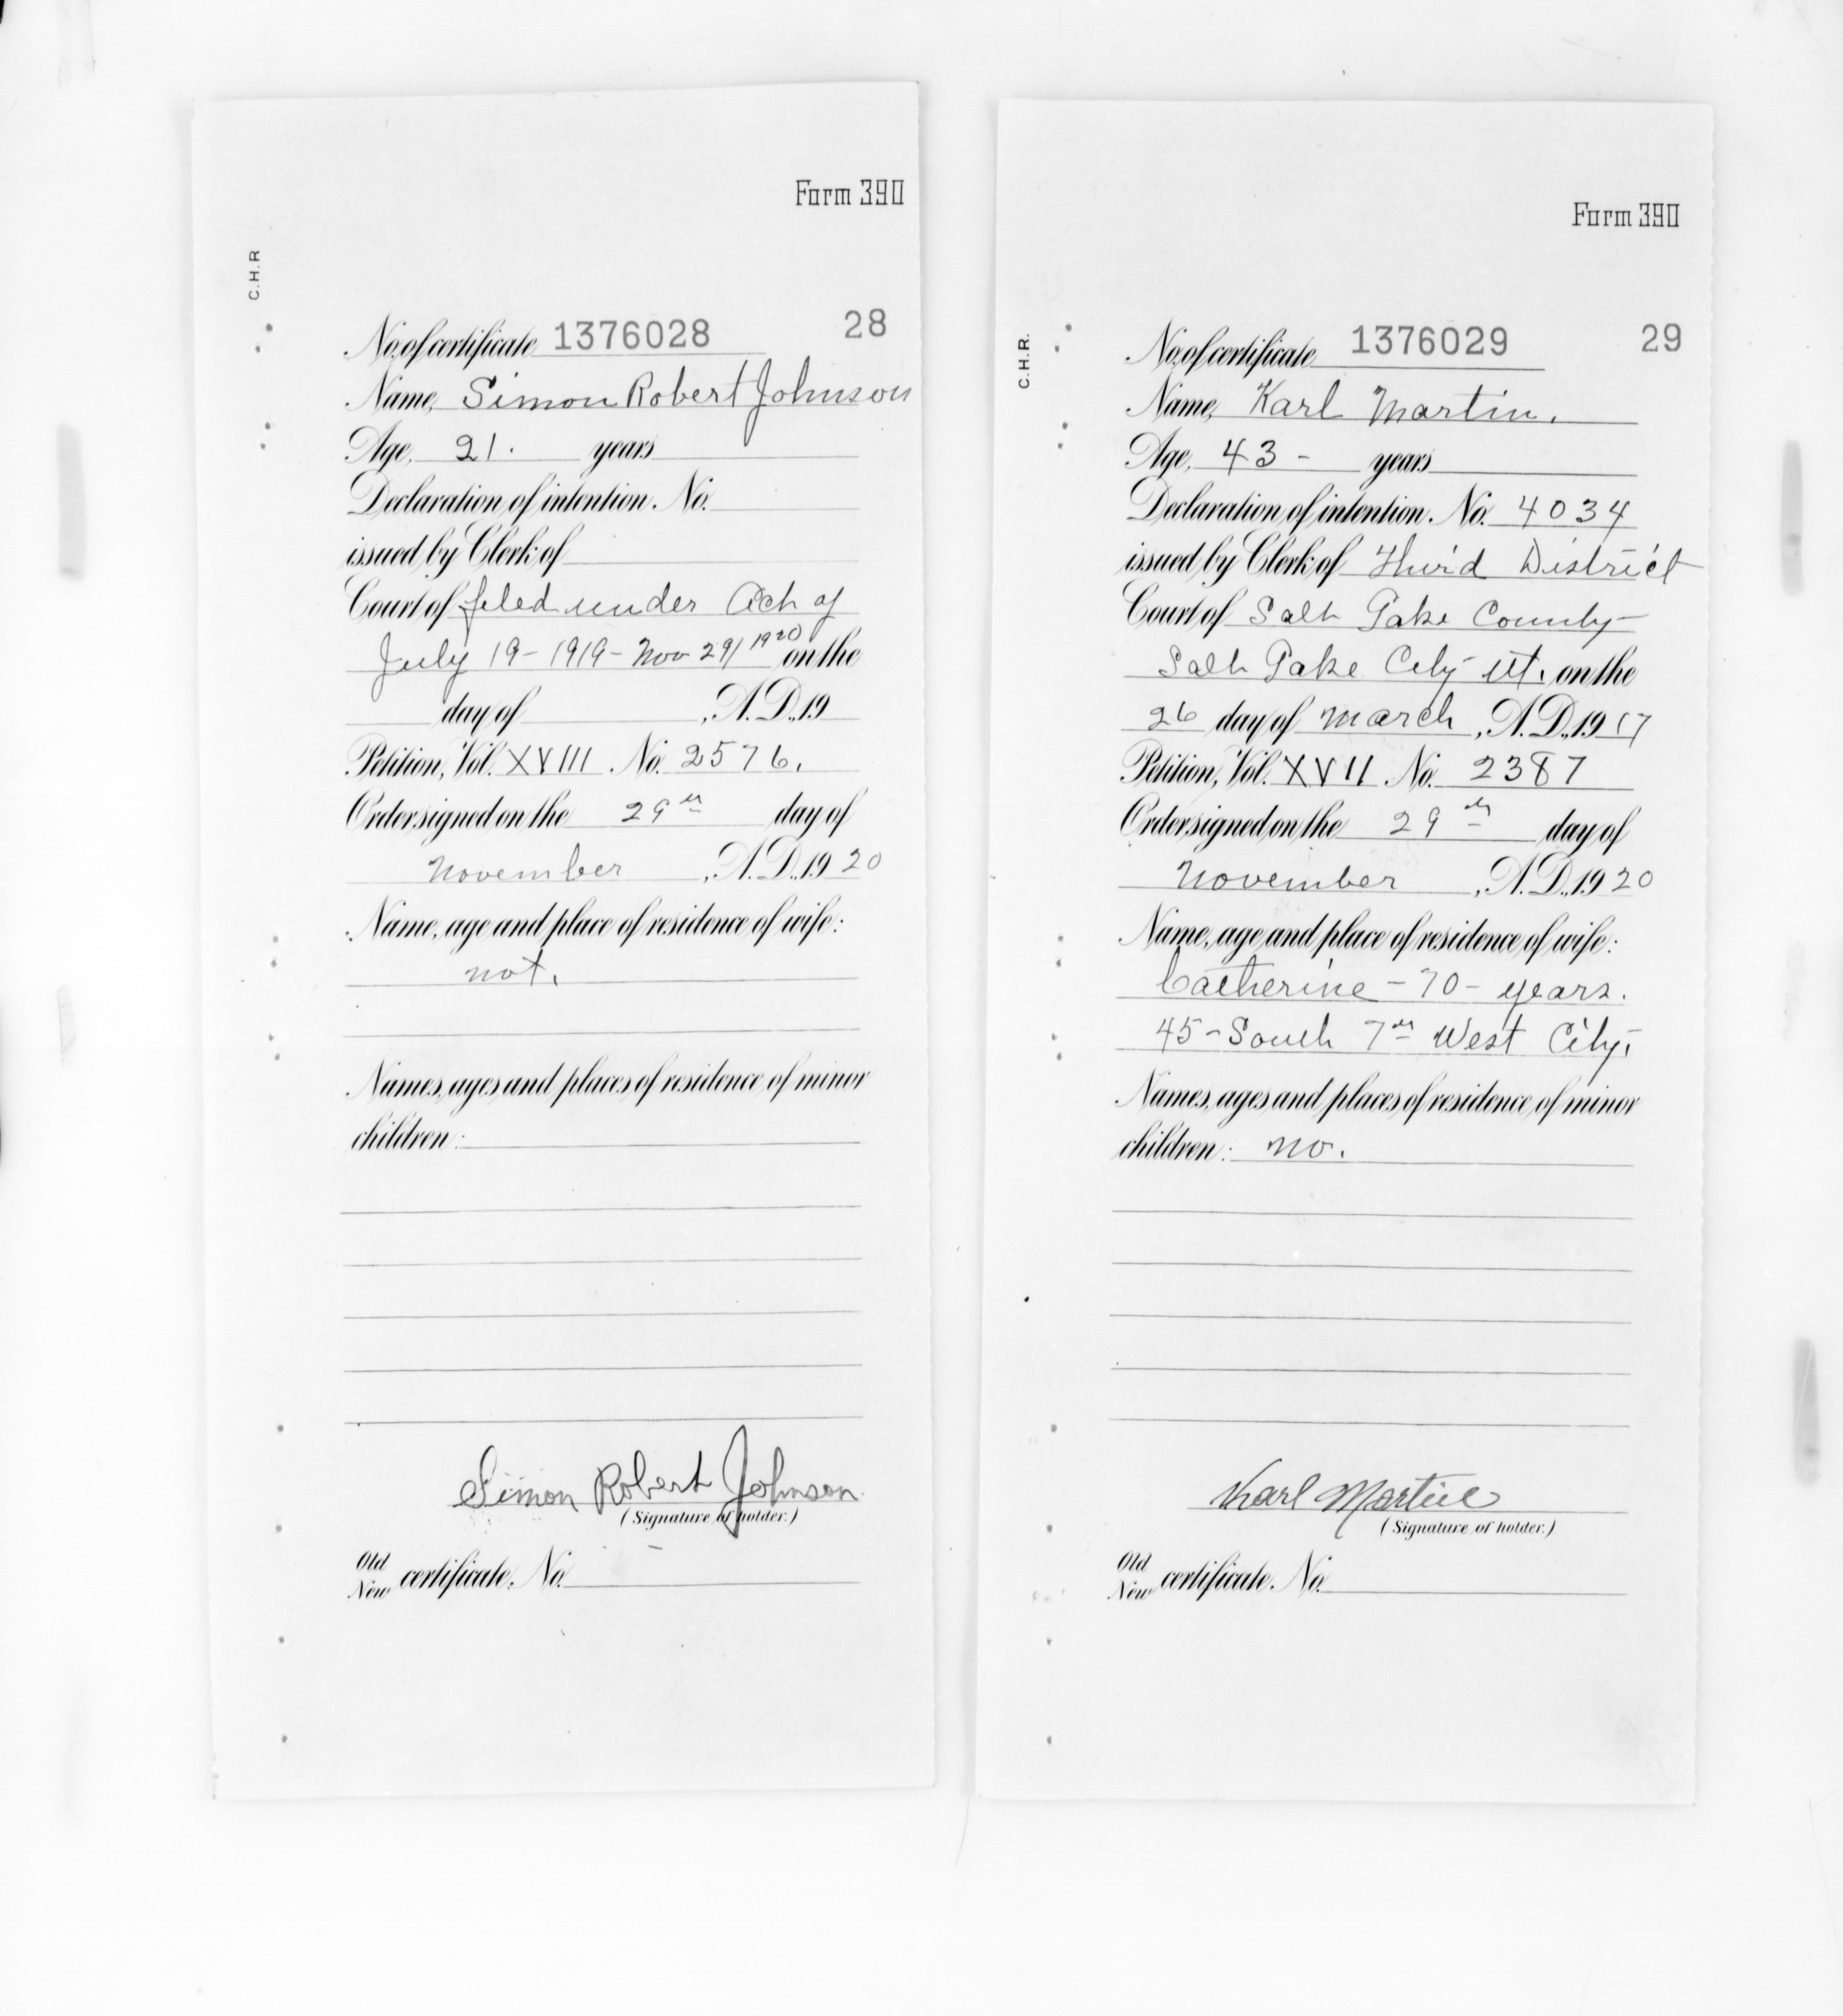 Form 390
C.H.R
No. of certificate 1376028 28
Name, Simon Robert Johnson
Age, 21. years
Declaration of intention. No.
issued by Clerk of
Court of filed under Act of
July 19-1919- Nov 29/1920 on the
day of , A.D., 19
Petition, Vol. XVIII No. 2576.
Order signed on the 29th day of
November , A.D., 19 20
Name, age and place of residence of wife:
not.
Names, ages and places of residence of minor
children:
Simon Robert Johnson
(Signature of holder.)
Old
New certificate, No.
Form 390
C.H.R.
No. of certificate 1376029 29
Name, Karl Martin.
Age, 43 - years
Declaration of intention. No. 4034
issued by Clerk of Third District
Court of Salt Lake County
Salt Lake City Ut. on the
26 day of March, A.D., 19 17
Petition, Vol. XVII No. 2387
Order signed on the 29th day of
November , A.D., 19 20
Name, age and place of residence of wife:
Catherine - 70 - years.
45 - South 7th West City.
Names, ages and places of residence of minor
children: no.
Karl Martin
(Signature of holder.)
Old
New certificate. No.